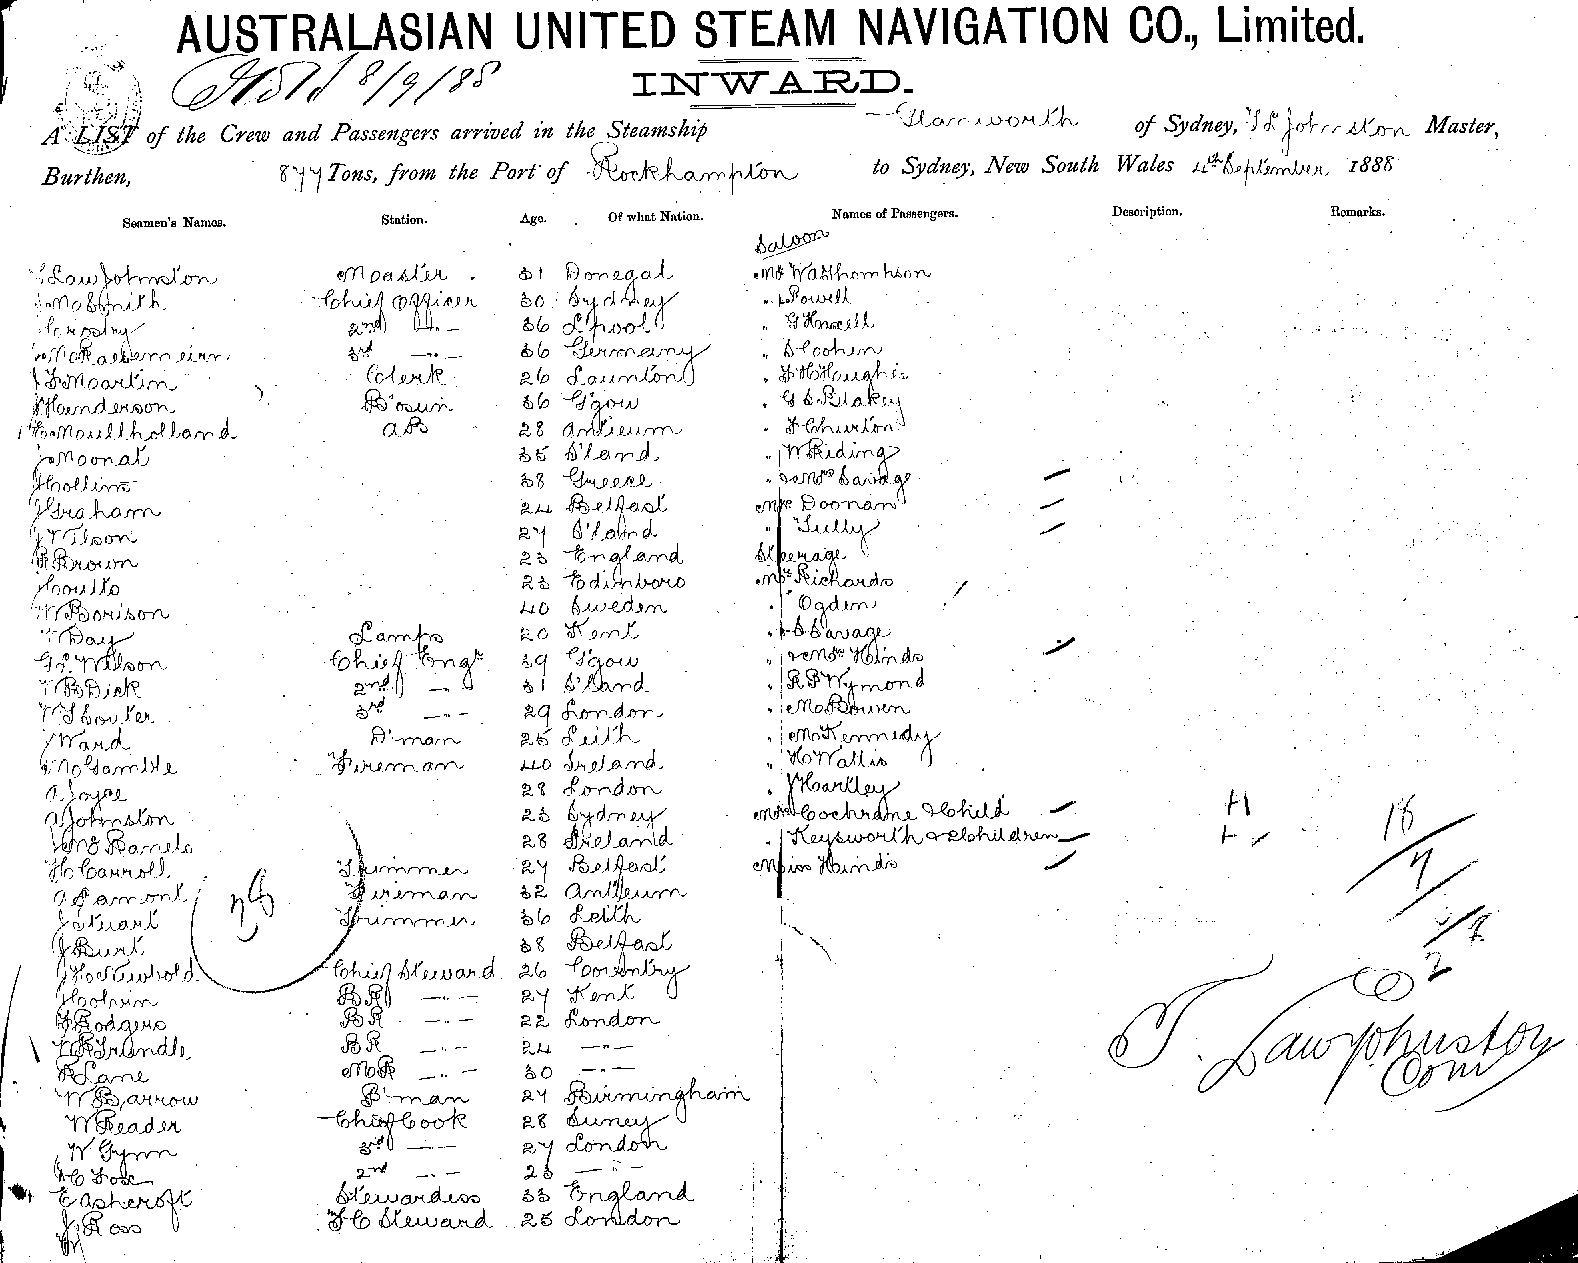 AUSTRALASIAN UNITED STEAM NAVIGATION CO., Limited.
8/9/88
INWARD.
A LIST of the Crew and Passengers arrived in the Steamship Glanworth of Sydney, T L Johnston Master,
Burthen, 877 Tons, from the Port of Rockhampton to Sydney, New South Wales 4th September 1888
Seamen's Names. Station. Age. Of what Nation. Names of Passengers. Description. Remarks.
Saloon
T Law Johnston Master 31 Donegal Mr Wa Thompson
McSmith Chief Officer 30 Sydney " Powell
2nd 36 L'pool "
3rd —"— 36 Germany " S Cohen
J F Martin Clerk 26 Launton "
J Henderson B'osun 36 G'gow " G S Blakey
Moullholland AB 28 Antieum " F Churton
J Moonat 35 S'land " W Riding
J Collins 38 Greece " & Mrs Savage
J Graham 24 Belfast Mrs Doonan
J Wilson 27 S'land " Tully
R Brown 23 England Steerage
J Coutts 23 Edinboro Mr Richards
W Borison 40 Sweden " Ogden
Day Lamps 20 Kent " S Savage
G L Wilson Chief Engr 39 G'gow " & Mrs Hinds
B Dick 2nd —"— 31 S'land " R P Wymond
3rd —"— 29 London " McBowen
J Ward D'man 25 Leith " McKennedy
McGamble Fireman 40 Ireland " H Wallis
A Joyce 28 London " J Hartley
A Johnston 23 Sydney Mrs Cochrane & Child H 18
J McDaniels 28 Ireland " Keysworth & 2 Children
H Carroll Trimmer 27 Belfast Miss Hinds 7
A Lamont Fireman 32 Antieum
J Stuart Trimmer 36 Leith
J Burt 38 Belfast
J H Newbold Chief Steward 26 Coventry 2
J Colvin BR —"— 27 Kent
J Rodgers BR —"— 22 London
BR —"— 24 —"—
T. Law Johnston
R Lane MR —"— 30 —"—
Com
W Barrow P'man 27 Birmingham
W Reader Chief Cook 28 Surrey
W Gynn 3rd —"— 27 London
2nd —"— 23 —"—
E Ashcroft Stewardess 33 England
J Ross F C Steward 25 London